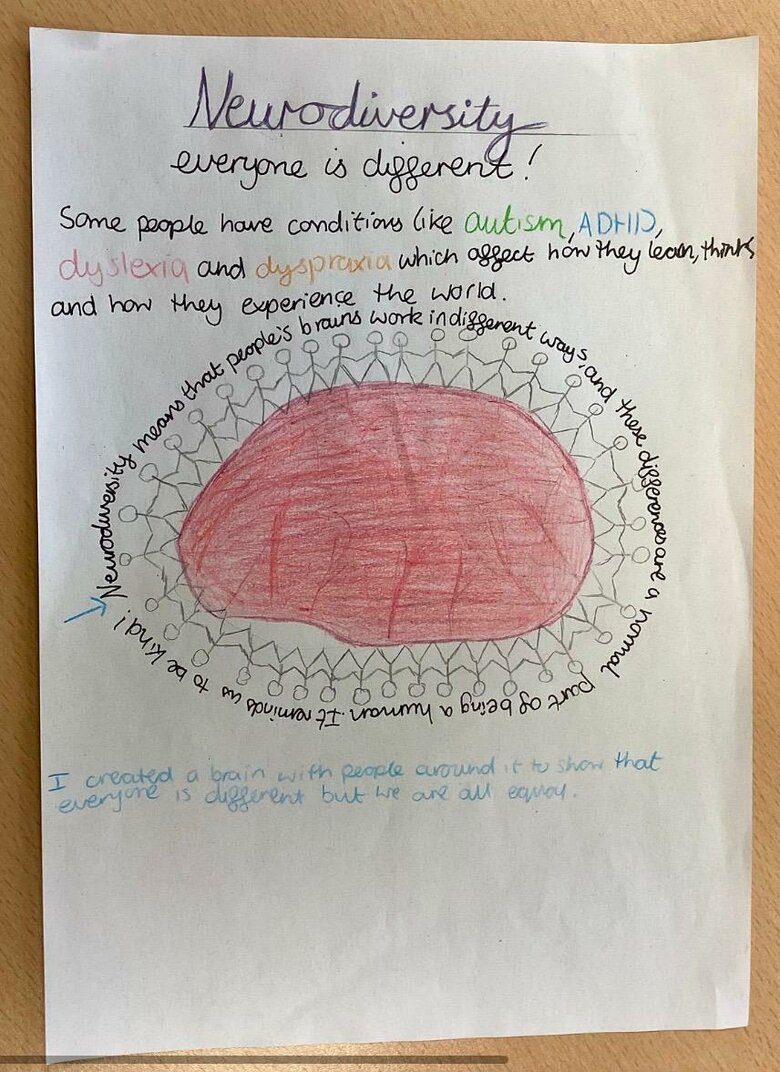 Neurodiversity
everyone is different!
Some people have conditions like autism, ADHD,
dyslexia and dyspraxia which affect how they learn, thinks
and how they experience the world.
Neurodiversity means that people's brains work in different ways, and these differences are a normal part of being a human. It reminds us to be kind!
I created a brain with people around it to show that
everyone is different but we are all equay.